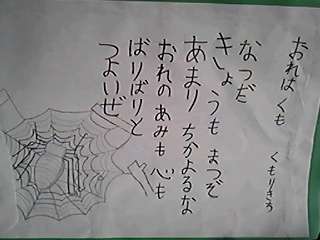 おれは くも
くもりきろ
なつだ
きしょうも まつぞ
あまり ちかよるな
おれの あみも 心も
ばりばりと
つよいぜ